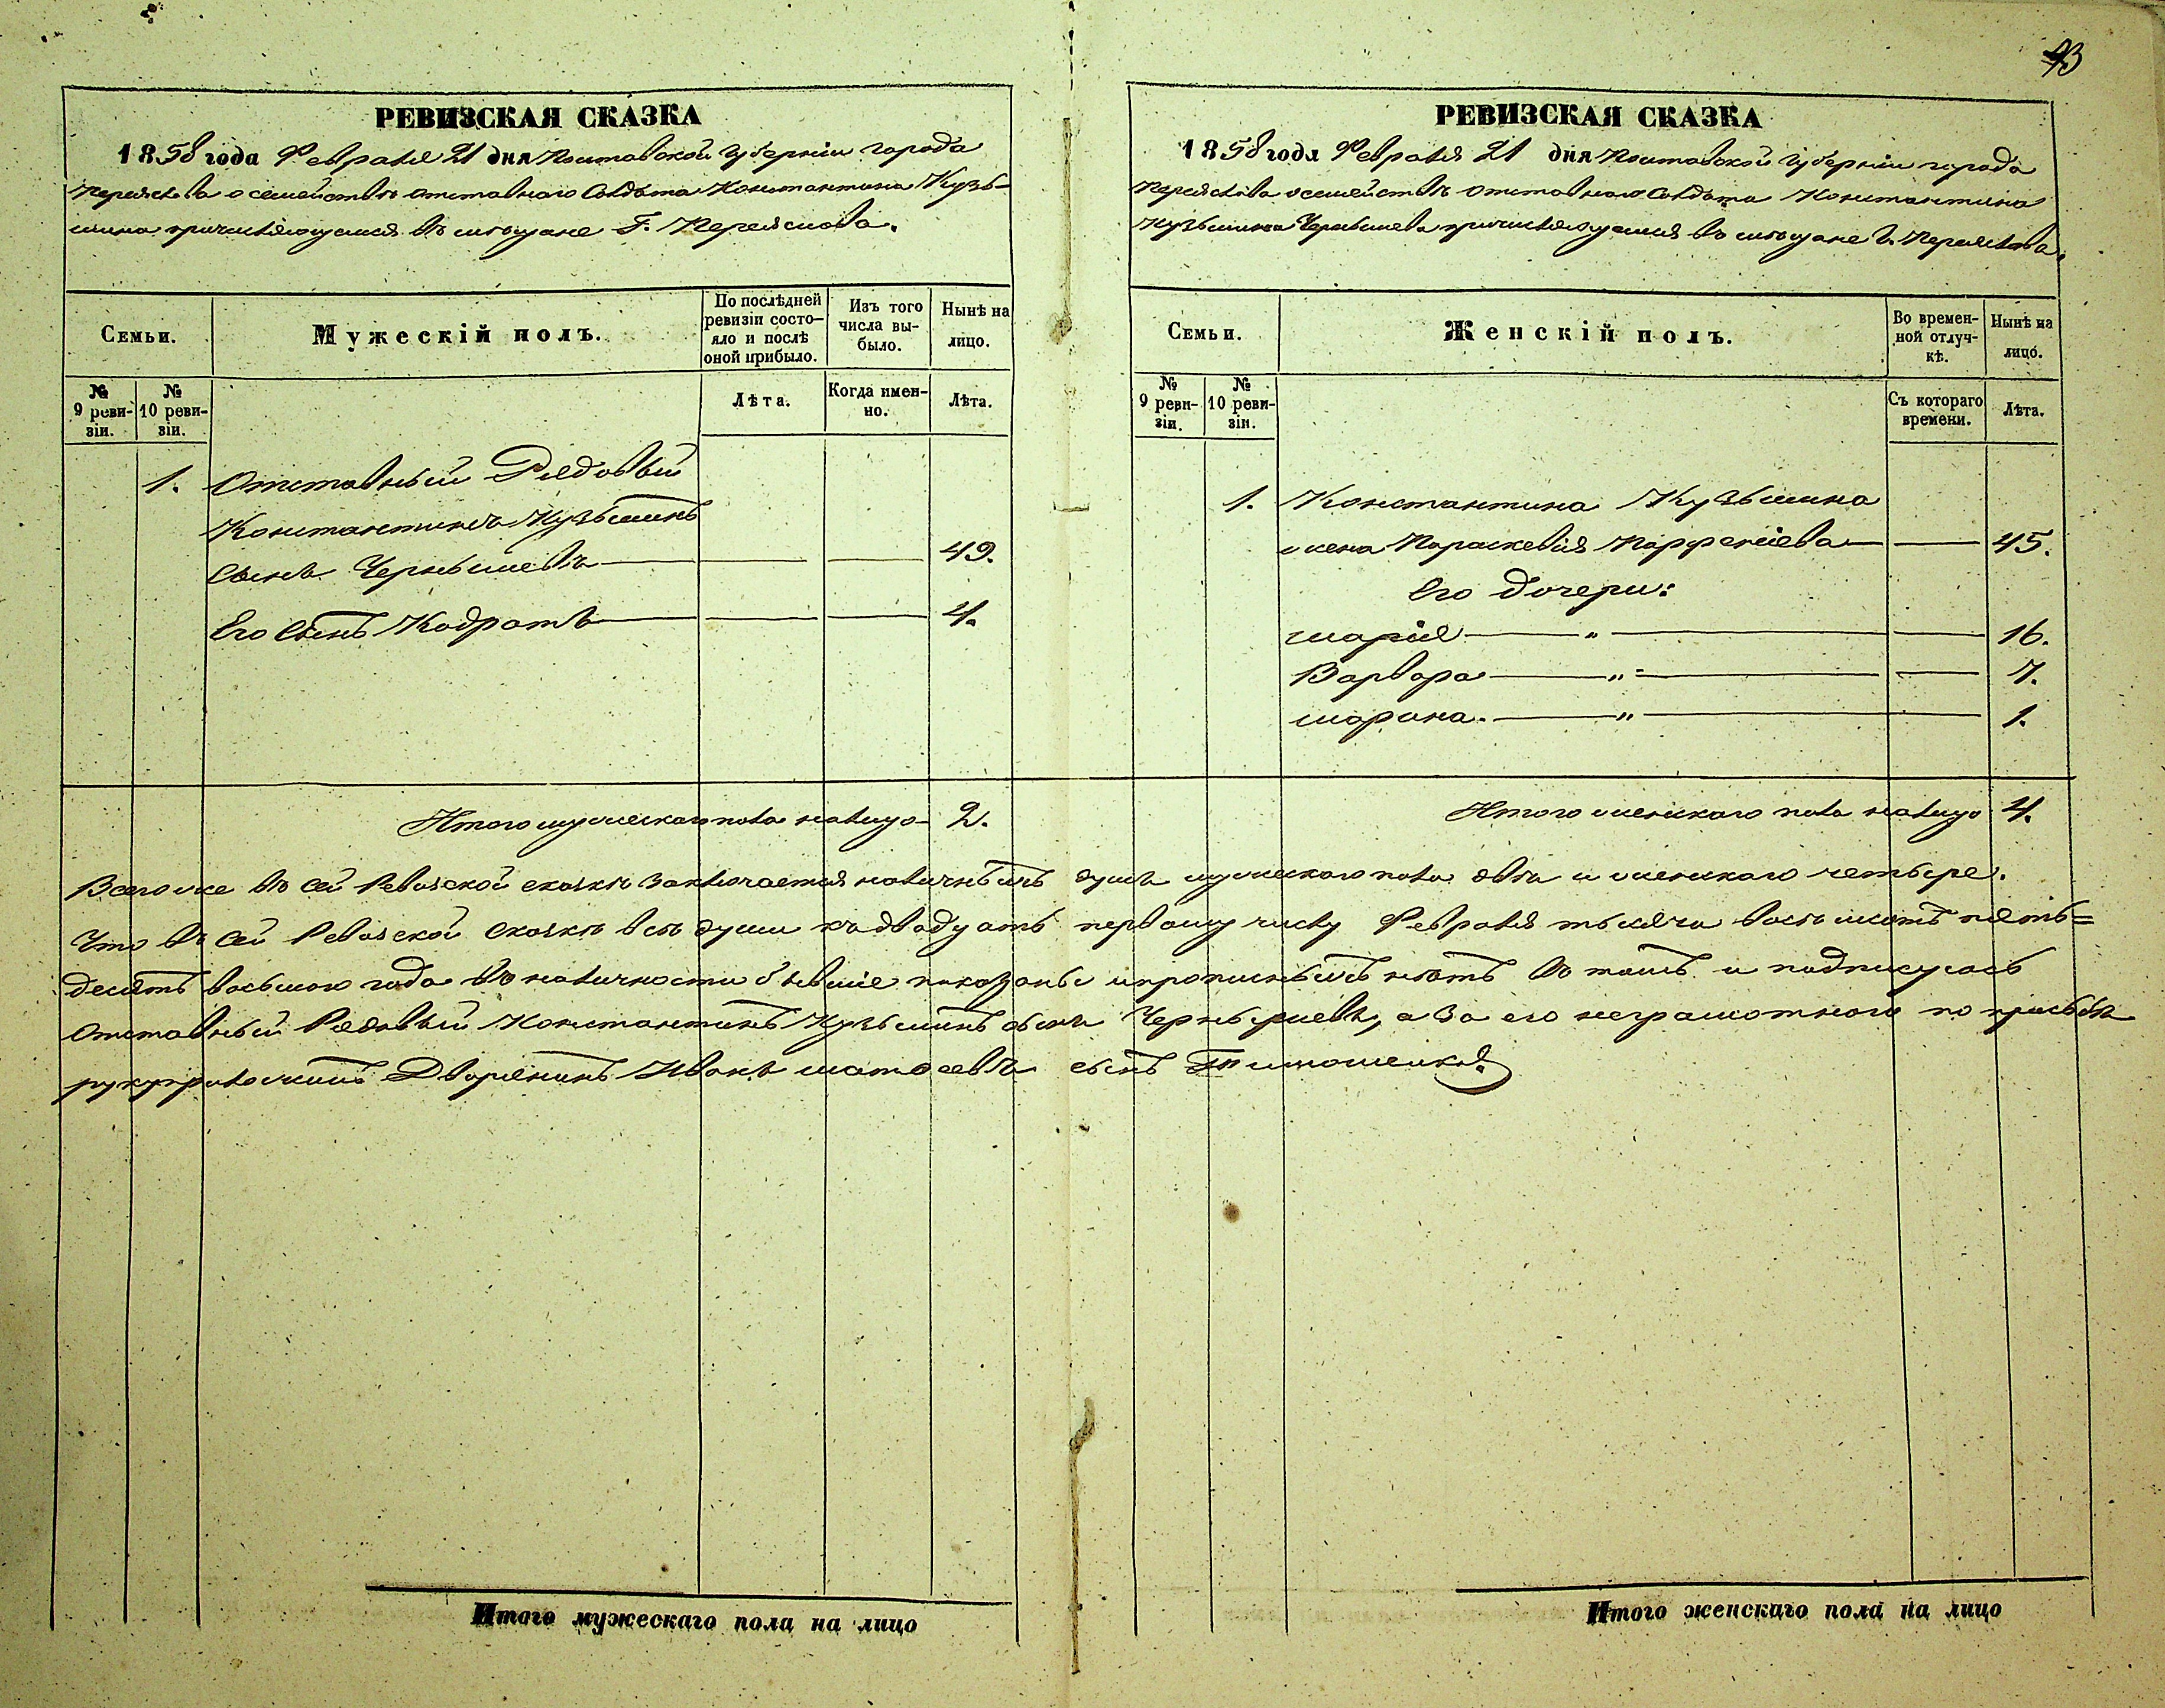 43
РЕВИЗСКАЯ СКАЗКА
1858 года Февраля 21 дня Полтавской Губерніи города
Переяслова о семействѣ отставного Солдата Константина Кузь-
мина причисляющемся въ мѣщане Г. Переяслова.
Семьи.
Мужескій полъ.
По послѣдней ревизіи состо-
яло и послѣ оной прибыло.
Изъ того числа вы-
было.
Нынѣ на лицо.
№ 9 реви-
зіи.
№ 10 реви-
зіи.
Лѣта.
Когда имен-
но.
Лѣта.
1. Отставный Рядовый
Константинъ Кузьминъ
Сынъ Чернышевъ 49.
Его Сынъ Кодратъ 4.
Итого мужескаго пола налицо 2.
РЕВИЗСКАЯ СКАЗКА
1858 года Февраля 21 дня Полтавской Губерніи города
Переяслова о семействѣ отставного Солдата Константина
Кузьмина Чернышева причисляющемся въ мѣщане Г. Переяслова.
Семьи.
Женскій полъ.
Во времен-
ной отлуч-
кѣ.
Нынѣ на лицо.
№ 9 реви-
зіи.
№ 10 реви-
зіи.
Съ котораго времени.
Лѣта.
1. Константина Кузьмина
жена Параскевія Парфеніева 45.
Его дочери:
Марія " 16.
Варвара " 7.
Марина. " 1.
Итого женскаго пола налицо 4.
Всего же въ сей Ревизской сказкѣ заключается наличныхъ душъ мужескаго пола двѣ и женскаго четыре.
Что въ сей Ревизской Сказкѣ всѣ души къ двадцать первому числу Февраля тысяча восемьсотъ пять=
десятъ восьмого года въ наличности бывшіе показаны и прописныхъ нѣтъ въ томъ и подписуюсь
Отставный Рядовый Константинъ Кузьминъ сынъ Чернышевъ, а за его неграмотного по прозьбѣ
рукуприложилъ Дворянинъ Иванъ Матвеевъ сынъ Тимошенко.
Итого мужескаго пола на лицо
Итого женскаго пола на лицо